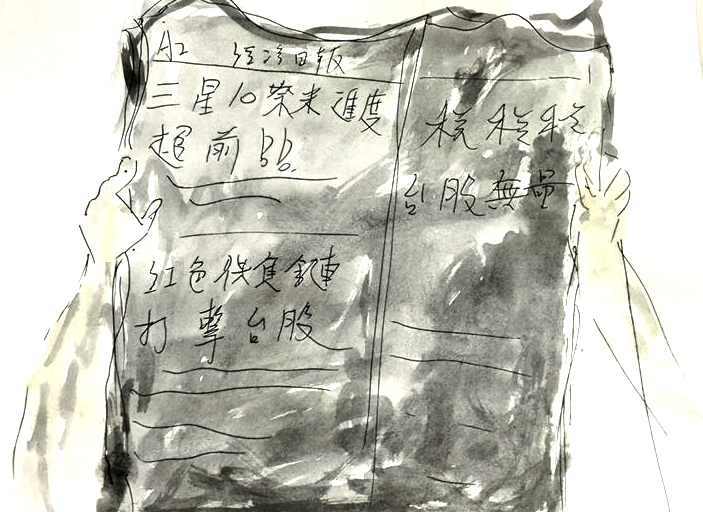 A2 經濟日報
三星10奈米進度
超前
紅色供應鏈
打擊台股
稅稅稅
台股無量